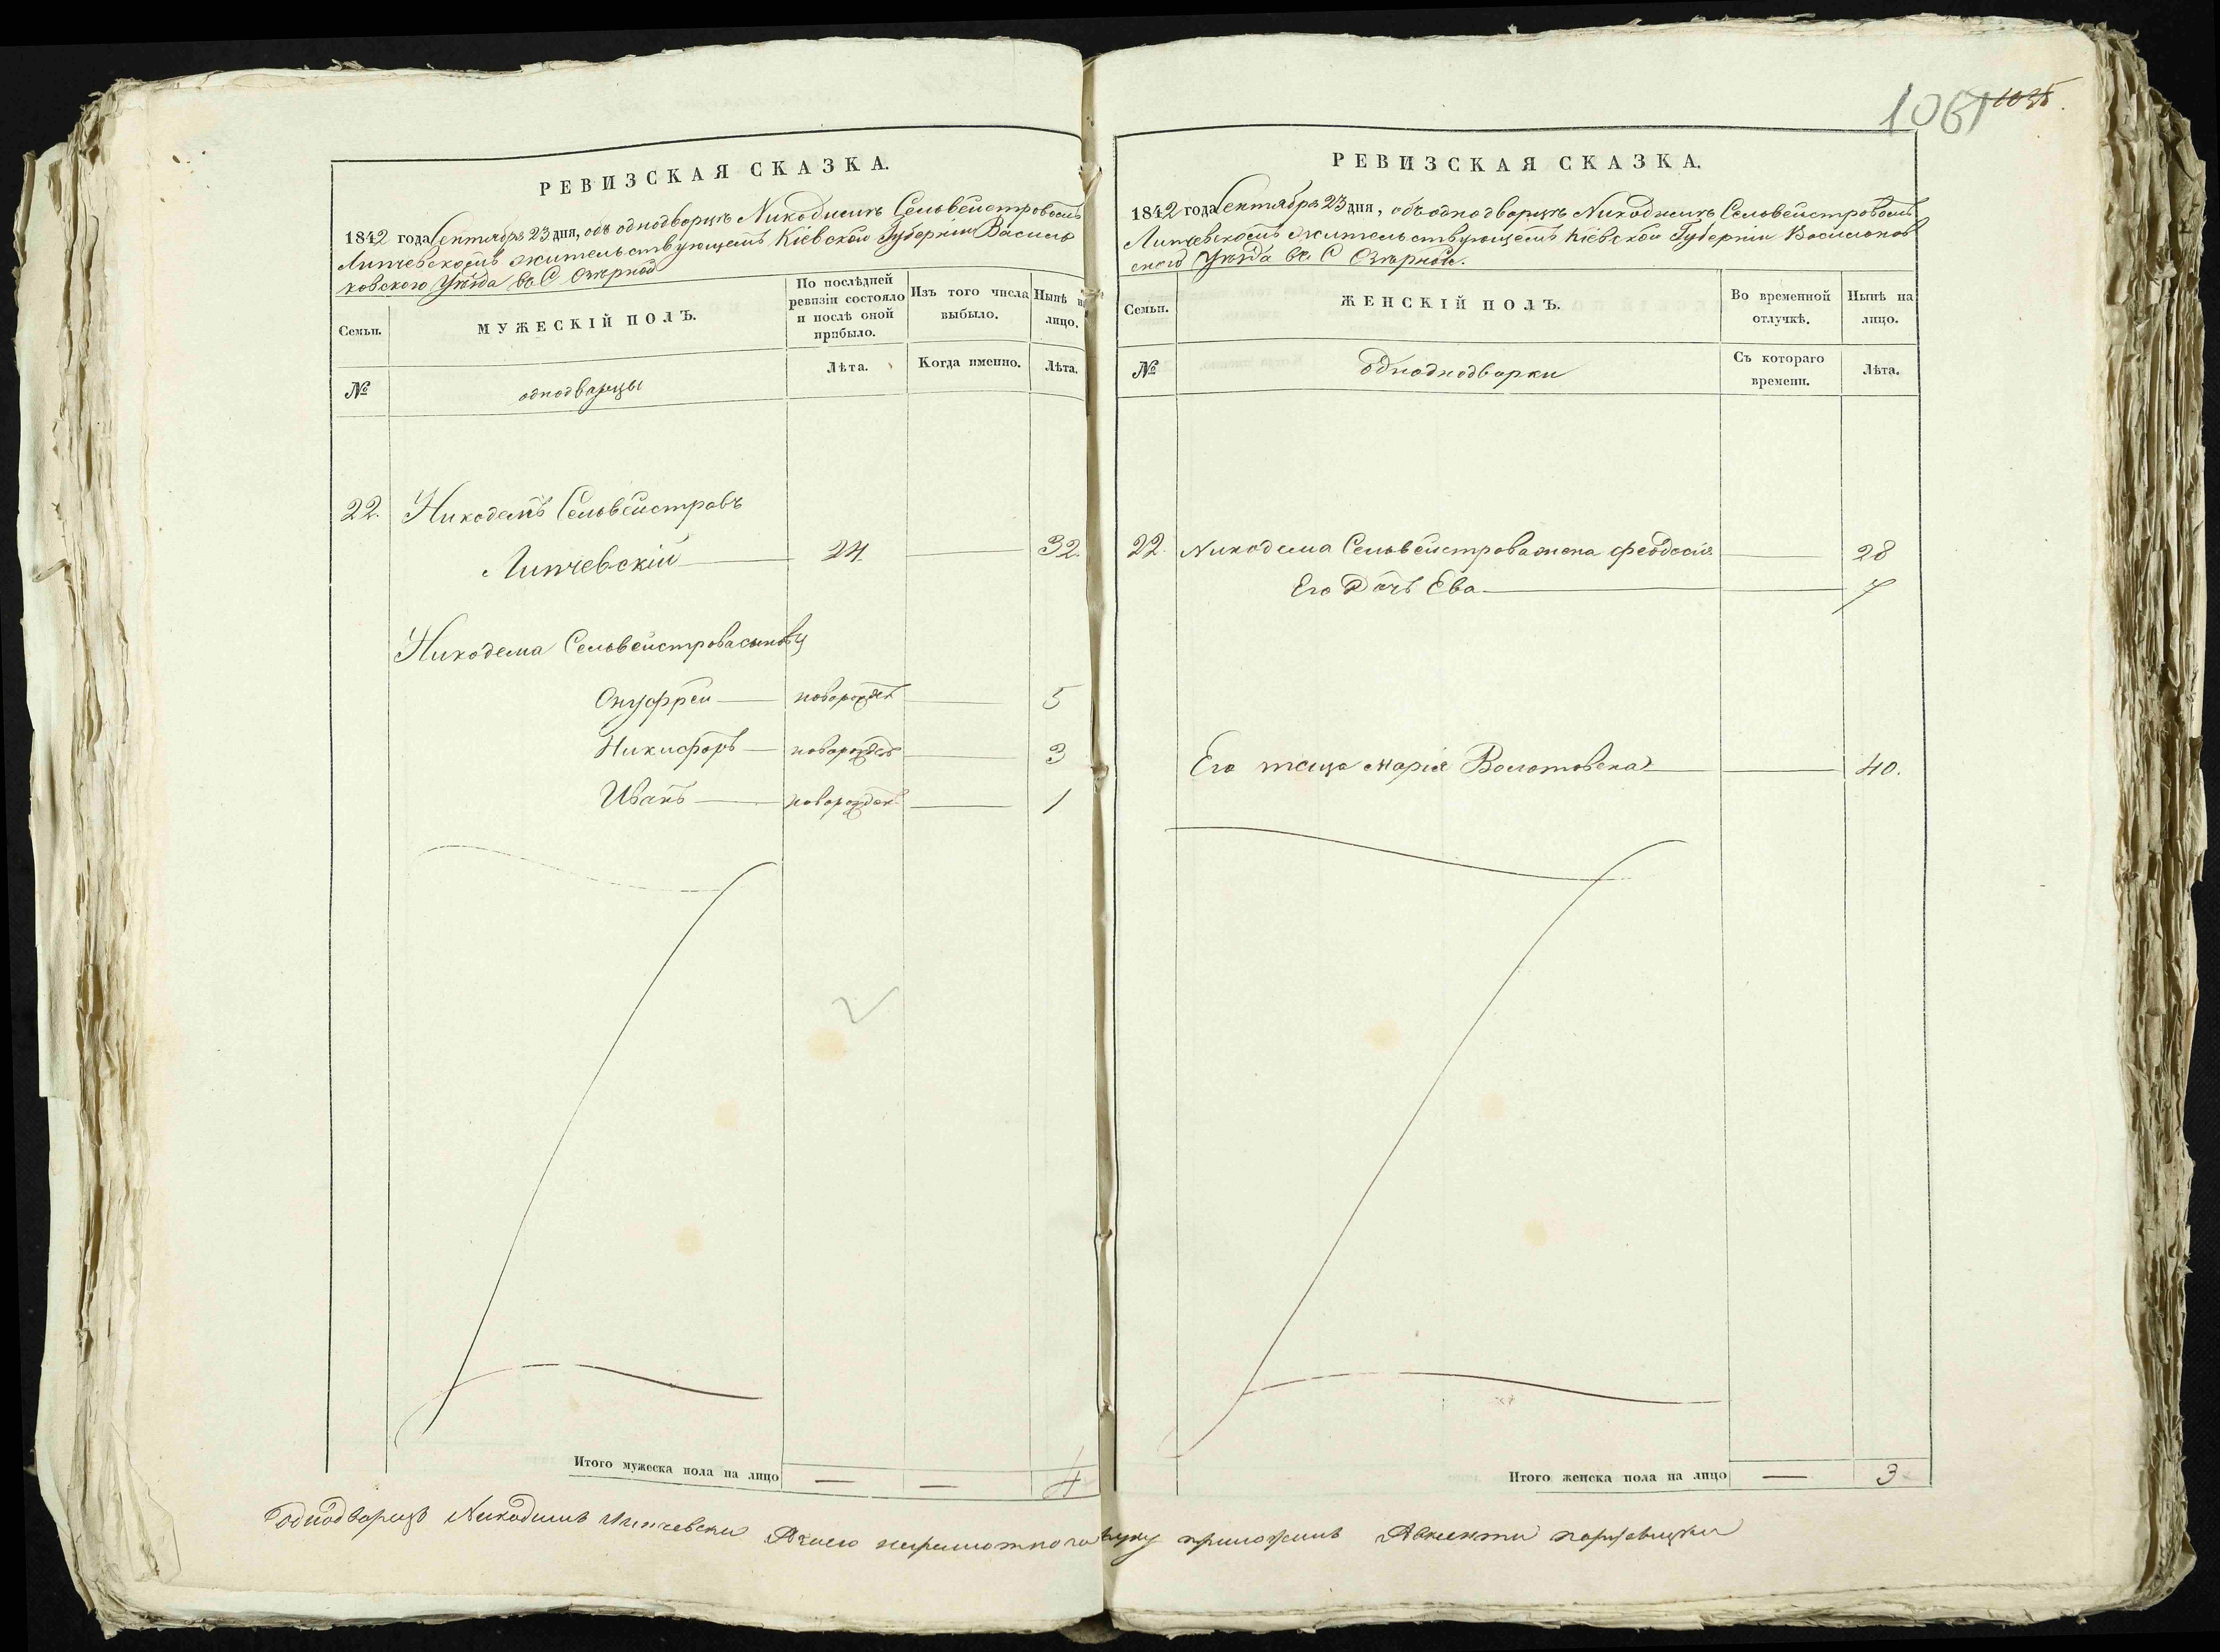 РЕВИЗСКАЯ СКАЗКА.
1842 года Сентября 23 дня, объ однодворцѣ Никодимѣ Сельвейстровомъ
Липчевскомъ жительствующемъ Кіевской Губерніи Василь
ковскаго Уѣзда въ С Озѣрной
Семьи.
МУЖЕСКІЙ ПОЛЪ.
По послѣдней
ревизіи состояло
и послѣ оной
прибыло.
Изъ того числа
выбыло.
Нынѣ на
лицо.
№
однодворцы
Лѣта.
Когда именно.
Лѣта.
22. Никодемъ Сельвейстровъ
Липчевскій — 24 — 32.
Никодема Сельвейстрова сыновья
Онуфрей — новорожден — 5
Никифоръ — новорожден — 3
Иванъ — новорожден — 1
Итого мужеска пола на лицо — — 4
1061 1035.
РЕВИЗСКАЯ СКАЗКА.
1842 года Сентября 23 дня, объ однодворцѣ Никодимѣ Сельвейстровомъ
Липчевскомъ жительствующемъ Кіевской Губерніи Васильков
скаго Уѣзда въ С Озѣрной.
Семьи.
ЖЕНСКІЙ ПОЛЪ.
Во временной
отлучкѣ.
Нынѣ на
лицо.
№
однодворки
Съ котораго
времени.
Лѣта.
22. Никодема Сельвейстрова жена Феодосія — 28
Его Дочь Ева — 7
Его теща Марія — 40.
Итого женска пола на лицо — 3
однодворецъ Никодимъ Липчевски Азаего неграмотнаго руку приложилъ